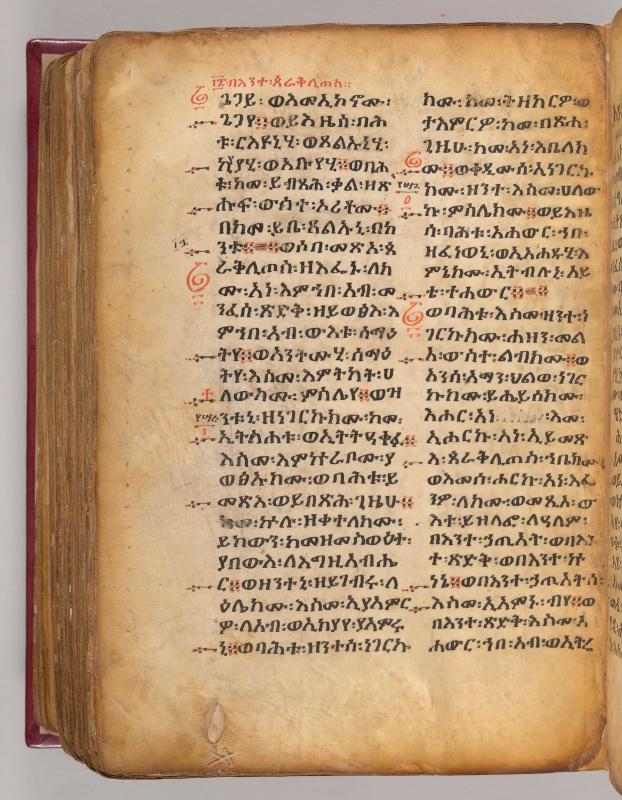 ፲፫፡በእንተ፡ጰራቅሊጦስ።
ጌጋይ፡ወእመኢኮኖሙ፡
ጌጋየ።ወይእዜሰ፡ባሕ
ቱ፡ርእዩኒሂ፡ወጸልኡኒሂ፡
ኪያየሂ፡ወአቡየሂ።ወባሕ
ቱ፡ከመ፡ይብጻሕ፡ቃል፡ዘጽ
ሑፍ፡ውስተ፡ኦሪቶሙ።
በከመ፡ይቤ፡ጸልኡኒ፡በከ
ንቱ።ወሶበ፡መጽአ፡ጰ
ራቅሊጦስ፡ዘእፌኑ፡ለክ
ሙ፡አነ፡እምኀበ፡አብ፡መ
ንፈሰ፡ጽድቅ፡ዘይወፅእ፡እ
ምኀበ፡አብ፡ውእቱ፡ሰማዕ
ትየ።ወአንትሙሂ፡ሰማዕ
ትየ፡እስመ፡እምትካት፡ሀ
ለውክሙ፡ምስሌየ።ወዝ
ንቱኒ፡ዘነገርኩክሙ፡ከመ፡
ኢትስሐቱ፡
እስመ፡እምኵራቦሙ፡ያ
ወፅኡክሙ፡ወባሕቱ፡ይ
መጽእ፡ወይበጽሕ፡ጊዜሁ።
ከመ፡ኵሉ፡ዘቀተለክሙ፡
ይከውን፡ከመዘመስዋዕተ፡
ያበውእ፡ለእግዚአብሔ
ር።ወዘንተኒ፡ዘይገብሩ፡ላ
ዕሌክሙ፡እስመ፡ኢያአምር
ዎ፡ለአብ፡ወኪያየ፡ያአምሩ
ኒ።ወባሕቱ፡ዘንተሰ፡ነገርኩ
ክሙ፡ከመ፡ትዘከርዎ፡ወ
ታእምርዎ፡ከመ፡በጽሐ፡
ጊዜሁ፡ከመ፡አነ፡እቤለክ
ሙ።ወቀዲሙሰ፡ኢነገርኩ
ክሙ፡ዘንተ፡እስመ፡ሀለው
ኩ፡ምስሌክሙ።ወይእዜ
ሰ፡ባሕቱ፡አሐውር፡ኀበ፡
ዘፈነወኒ፡ወኢአሐዱሂ፡እ
ምኔክሙ፡ኢትብሉኒ፡አይ
ቴ፡ተሐውር።
ወባሕቱ፡እስመ፡ዘንተ፡ነ
ገርኩክሙ፡ሐዘን፡መል
አ፡ውስተ፡ልብክሙ።ወ
አንሰ፡አማን፡ህልወ፡ነገር
ኩክሙ፡ይሔይሰክሙ፡
እሑር፡አነ፡እመ፡
ኢሐርኩ፡አነ፡ኢይመጽ
እ፡ጰራቅሊጦስ፡ኀቤክሙ
ወእመሰ፡ሐርኩ፡አነ፡እፌ
ንዎ፡ለክሙ፡ወመጺኦ፡ው
እቱ፡ይዘልፎ፡ለዓለም፡
በእንተ፡ኃጢአት፡ወበእን
ተ፡ጽድቅ፡ወበእንተ፡ኵ
ነኔ።ወበእንተ፡ኃጢአትሰ፡
እስመ፡ኢአምኑ፡ብየ።ወ
በእንተ፡ጽድቅ፡እስመ፡አ
ሐውር፡ኀበ፡አብ፡ወኢትሬ